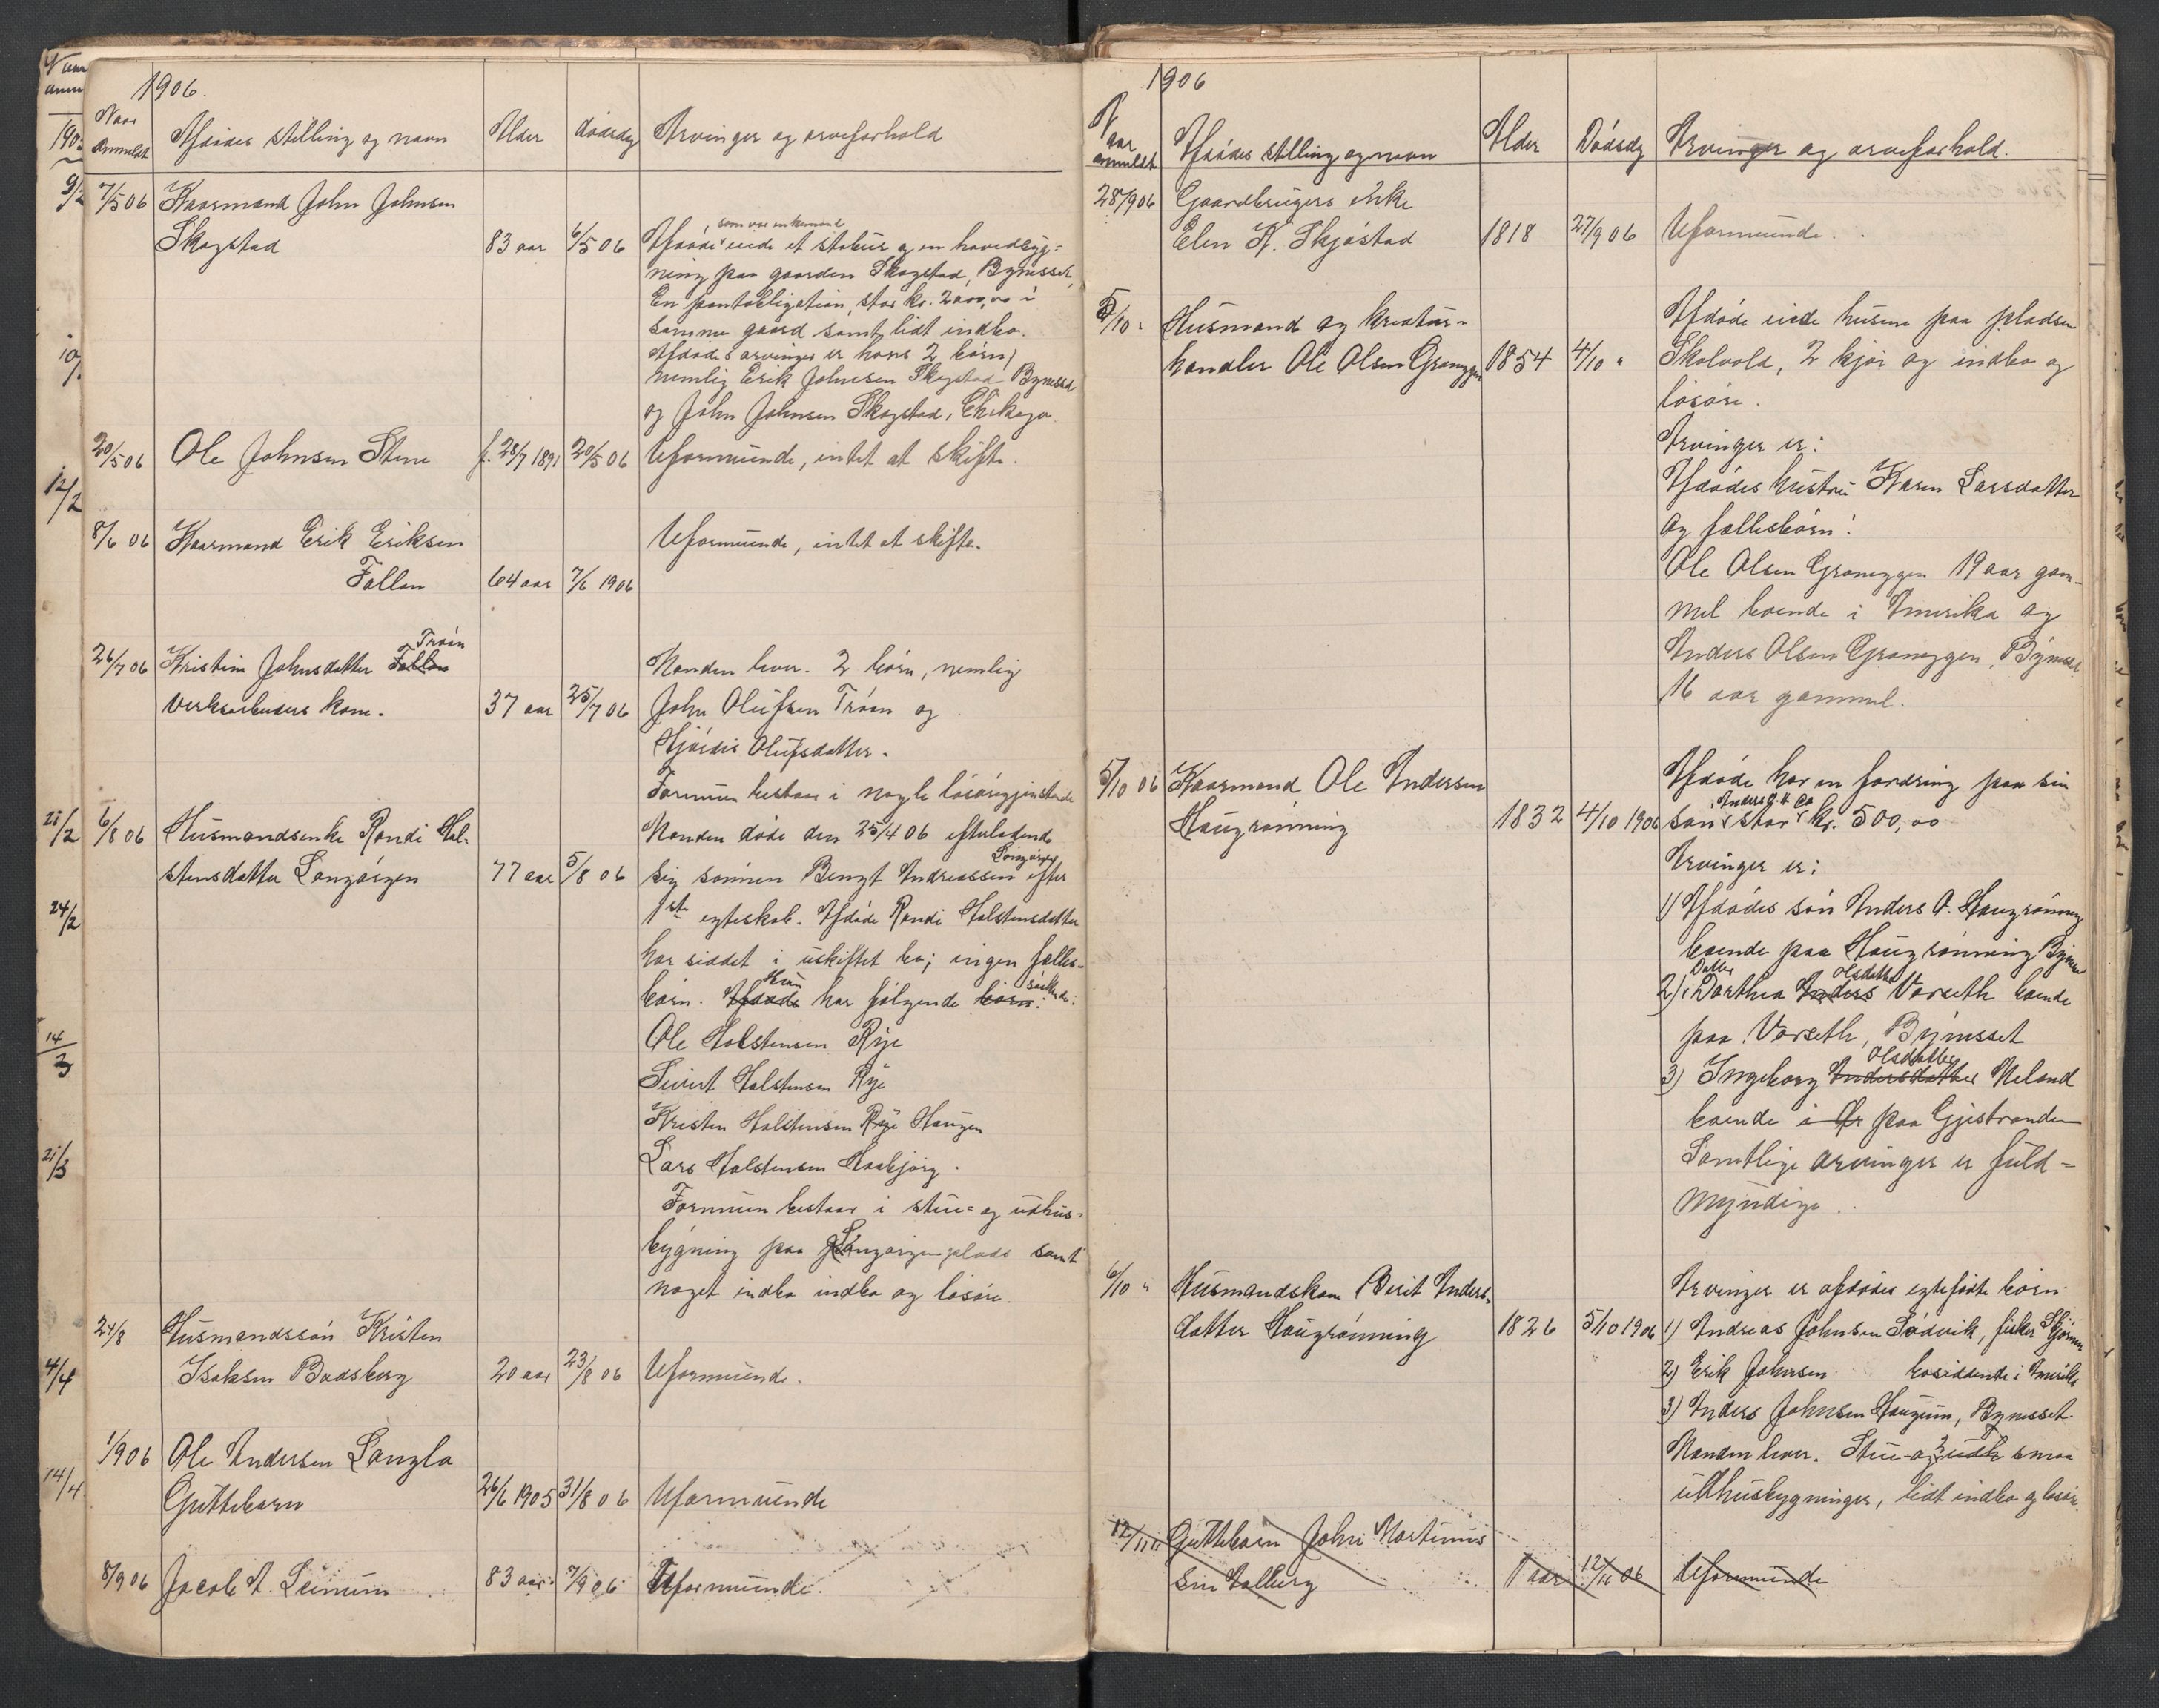 1906.
Naar anmeldt Afdødes stilling og navn Alder dødsdag Arvinger og arveforhold
7/5 06 Kaarmand John Johnsen
Skogstad 83 aar 6/5 06 Afdøde som var enkemand eiede et stabur og en hovedbyg-
ning paa gaarden Skogstad, Bynesset,
En pantobligation, stor kr. 2000,00 i
samme gaard samt lidt indbo.
Afdødes arvinger er hans 2 børn,
nemlig Erik Johnsen Skogstad Bynesset
og John Johnsen Skogstad, Chikago.
20/5 06 Ole Johnsen Stene f. 28/7 1891 20/5 06 Uformuende, intet at skifte.
8/6 06 Kaarmand Erik Eriksen Uformuende, intet at skifte.
Follan 64 aar 7/6 1906
26/7 06 Kristine Johnsdatter Follan Trøan Manden lever. 2 børn, nemlig
Verksarbeiders kone. 37 aar 25/7 06 John Olufsen Trøan og
Hjørdis Olufsdatter.
Formuen bestaar i nogle løsøregjenstande
6/8 06 Husmandsenke Randi Hal- Manden døde den 25/4 06 efterladende
stensdatter Langørgen 77 aar 5/8 06 sig sønnen Bengt Andreassen Langørgen efter
1ste egteskab. Afdøde Randi Halstensdatter
har siddet i uskiftet bo; ingen fælles-
børn. Afdøde Hun har følgende børn: søskende:
Ole Halstensen Rye
Sivert Halstensen Rye
Kristen Halstensen Rye Haugen
Lars Halstensen Haabjørg.
Formuen bestaar i stue- og udhus-
bygning paa Langørgenplads samt
noget indbo indbo og løsøre.
24/8 Husmandssøn Kristen
Isaksen Baadsberg 20 aar 23/8 06 Uformuende.
1/9 06 Ole Andersen Langlo
Guttebarn 26/6 1905 31/8 06 Uformuende
8/9 06 Jacob A. Leinum 83 aar 7/9 06 Uformuende.
1906
Naar anmeldt Afdødes stilling og navn Alder Dødsdag Arvinger og arveforhold.
28/9 06 Gaardbrugers enke
Elen K. Skjøstad 1818 27/9 06 Uformuende.
5/10 " Husmand og kreatur- Afdøde eiede husene paa pladsen
handler Ole Olsen Graneggen 1854 4/10 " Skolvold, 2 kjør og indbo og
løsøre.
Arvinger er:
Afdødes hustru Karen Larsdatter
og fællesbørn:
Ole Olsen Graneggen 19 aar gam-
mel boende i Amerika og
Anders Olsen Graneggen, Bynesset
16 aar gammel.
5/10 06 Kaarmand Ole Andersen Afdøde har en fordring paa sin
Haugrønning 1832 4/10 1906 søn stor kr. 500,00
Arvinger er:
1) Afdødes søn Anders O. Haugrønning
boende paa Haugrønning Bynesset
2) Datter Dorthea Anders Olsdatter Vorseth boende
paa Vorseth, Bynesset
3) Ingeborg Andersdatter Olsdatter Meland
boende i Ør paa Gjestranden
Samtlige arvinger er fuld-
myndige.
6/10 " Husmandskone Berit Anders- Arvinger er afdødes egtefødte børn
datter Haugrønning 1826 5/10 1906 1) Andreas Johnsen Sødvik, fisker
2) Erik Johnsen bosiddende i Amerika
3) Anders Johnsen Haugum, Bynesset.
Manden lever. Stue og 2 smaa
udhusbygninger, lidt indbo og løsøre.
12/11 Guttebarn John Martinus-
sen Solberg 1 aar 12/11 06 Uformuende